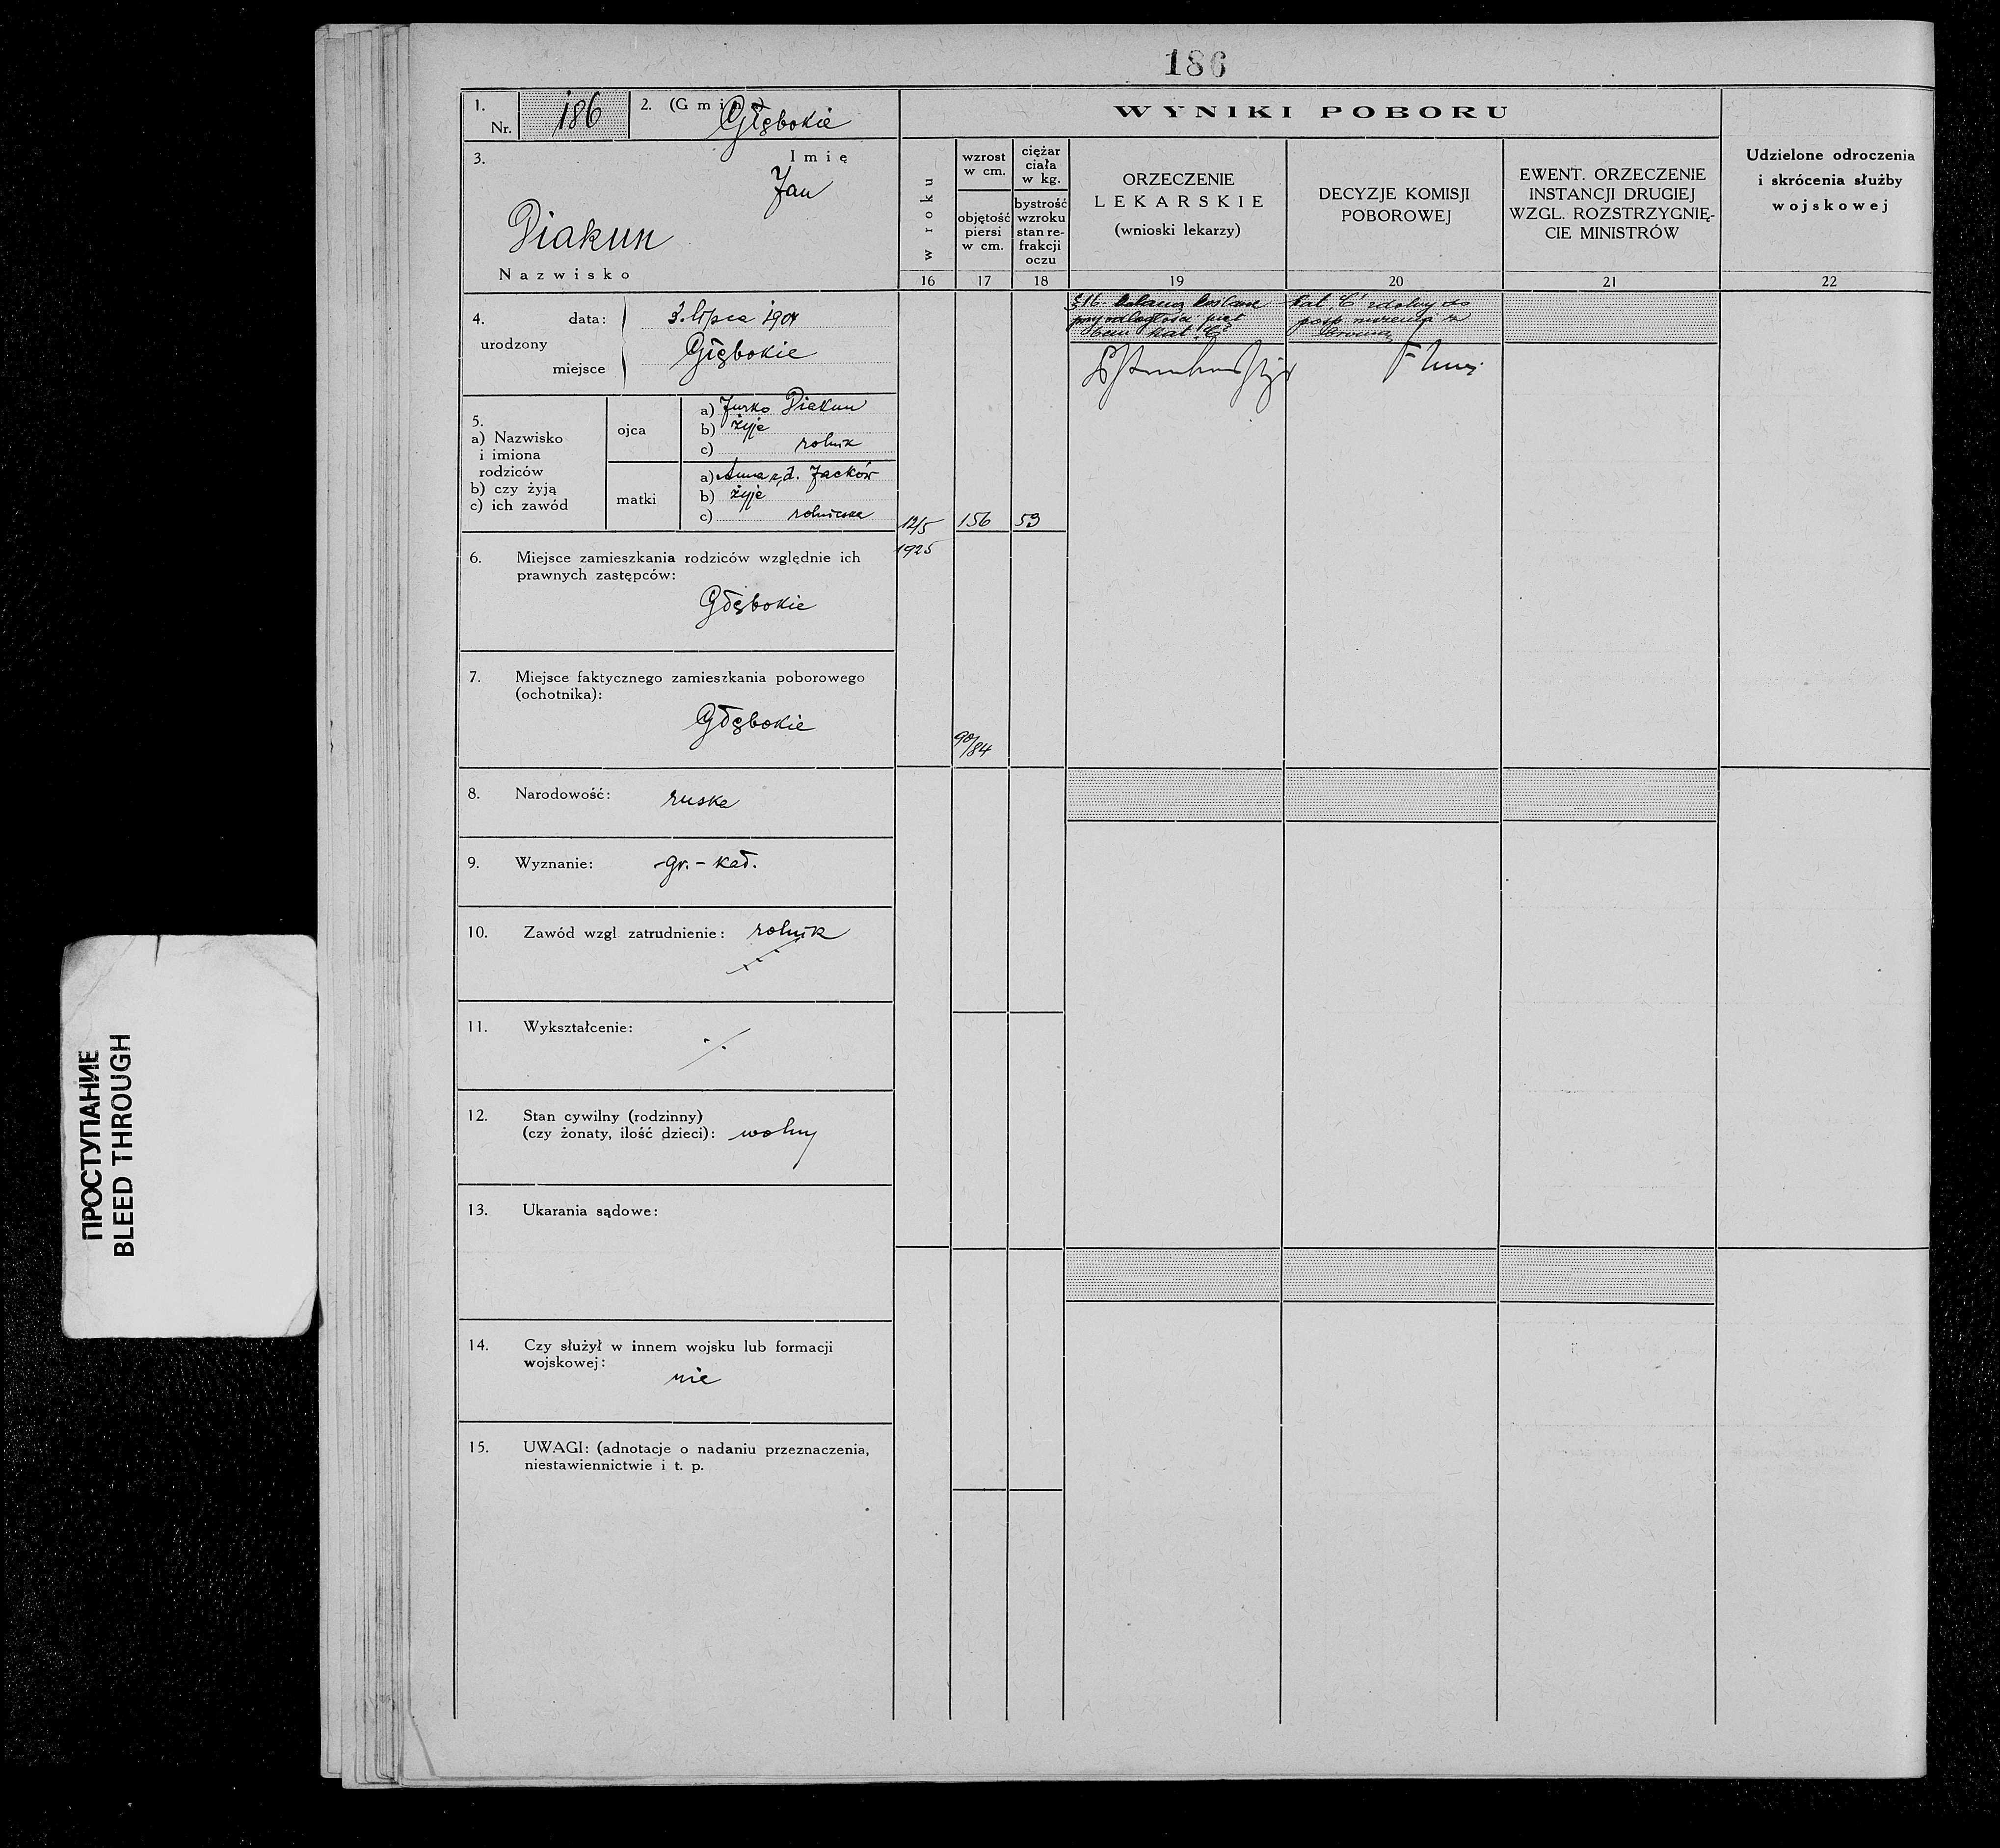 186
1. Nr. 186
2. (Gmina) Głębokie
WYNIKI POBORU
3. Imię
Jan
Diakun
Nazwisko
w roku
wzrost w cm.
objętość piersi w cm.
ciężar ciała w kg.
bystrość wzroku stan re-
frakcji oczu
ORZECZENIE
LEKARSKIE
(wnioski lekarzy)
DECYZJE KOMISJI
POBOROWEJ
EWENT. ORZECZENIE
INSTANCJI DRUGIEJ
WZGL. ROZSTRZYGNIĘ-
CIE MINISTRÓW
Udzielone odroczenia
i skrócenia służby
wojskowej
16 17 18 19 20 21 22
4. urodzony
data: 3. lipca 1904
miejsce Głębokie
§16 kolana
kat. C
Kat C zdolny do
posp. ruszenia z
bronią
5.
a) Nazwisko
i imiona
rodziców
b) czy żyją
c) ich zawód
ojca
a) Jurko Diakun
b) żyje
c) rolnik
matki
a) Anna z d. Jacków
b) żyje
c) rolniczka
12/5 156 53
1925
6. Miejsce zamieszkania rodziców względnie ich
prawnych zastępców:
Głębokie
7. Miejsce faktycznego zamieszkania poborowego
(ochotnika):
Głębokie
90/84
8. Narodowość: ruska
9. Wyznanie: gr. - kat.
10. Zawód wzgl. zatrudnienie: rolnik
11. Wykształcenie:
12. Stan cywilny (rodzinny)
(czy żonaty, ilość dzieci): wolny
13. Ukarania sądowe:
14. Czy służył w innem wojsku lub formacji
wojskowej:
nie
15. UWAGI: (adnotacje o nadaniu przeznaczenia,
niestawiennictwie i t. p.
ПРОСТУПАНИЕ
BLEED THROUGH